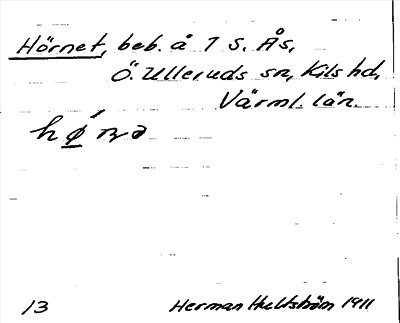 Hörnet, beb. å 7 S. Ås,
Ö. Ulleruds sn, Kils hd,
Värml. län.
hǿrnə
13 Herman Hultström 1911